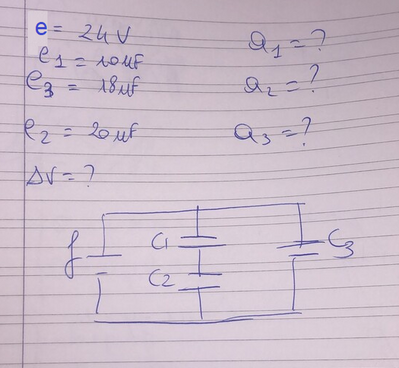 e = 24V
C1 = 10μF
C3 = 18μF
C2 = 20μF
ΔV = ?
Q1 = ?
Q2 = ?
Q3 = ?
f
C1
C2
C3